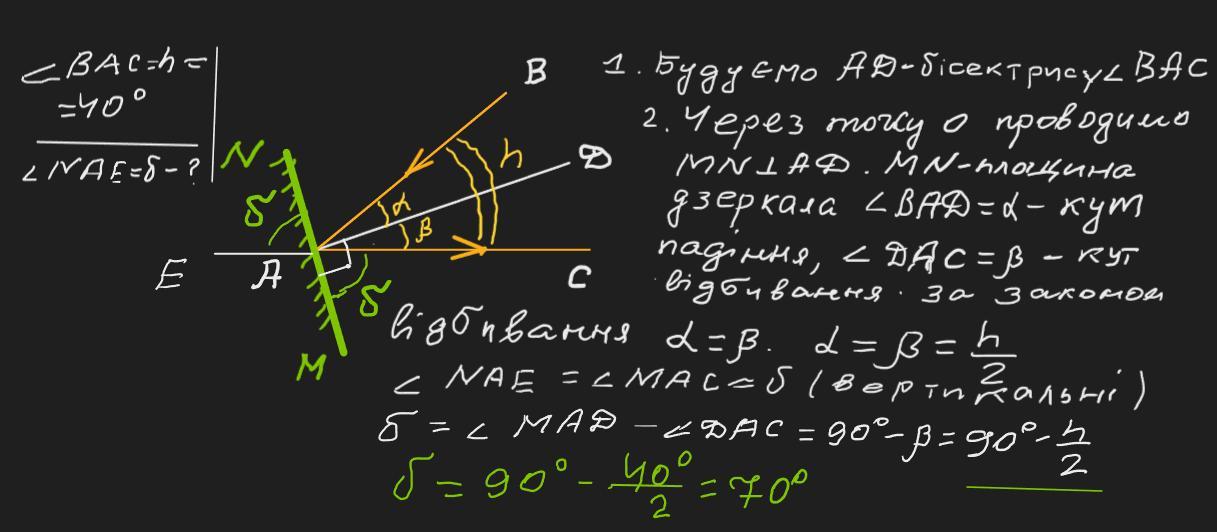 ∠BAC=h=
=40°
∠NAE=δ-?
N
δ
E
A
M
B
D
C
h
α
β
δ
1. Будуємо AD-бісектрису∠BAC
2. Через точку О проводимо
MN⊥AD. MN-площина
дзеркала ∠BAD=α- кут
падіння, ∠DAC=β- кут
відбивання. За законом
відбивання α=β. α=β=h/2
∠NAE=∠MAC=δ (вертикальні)
δ=∠MAD-∠DAC=90°-β=90°-h/2
δ=90°-40°/2=70°